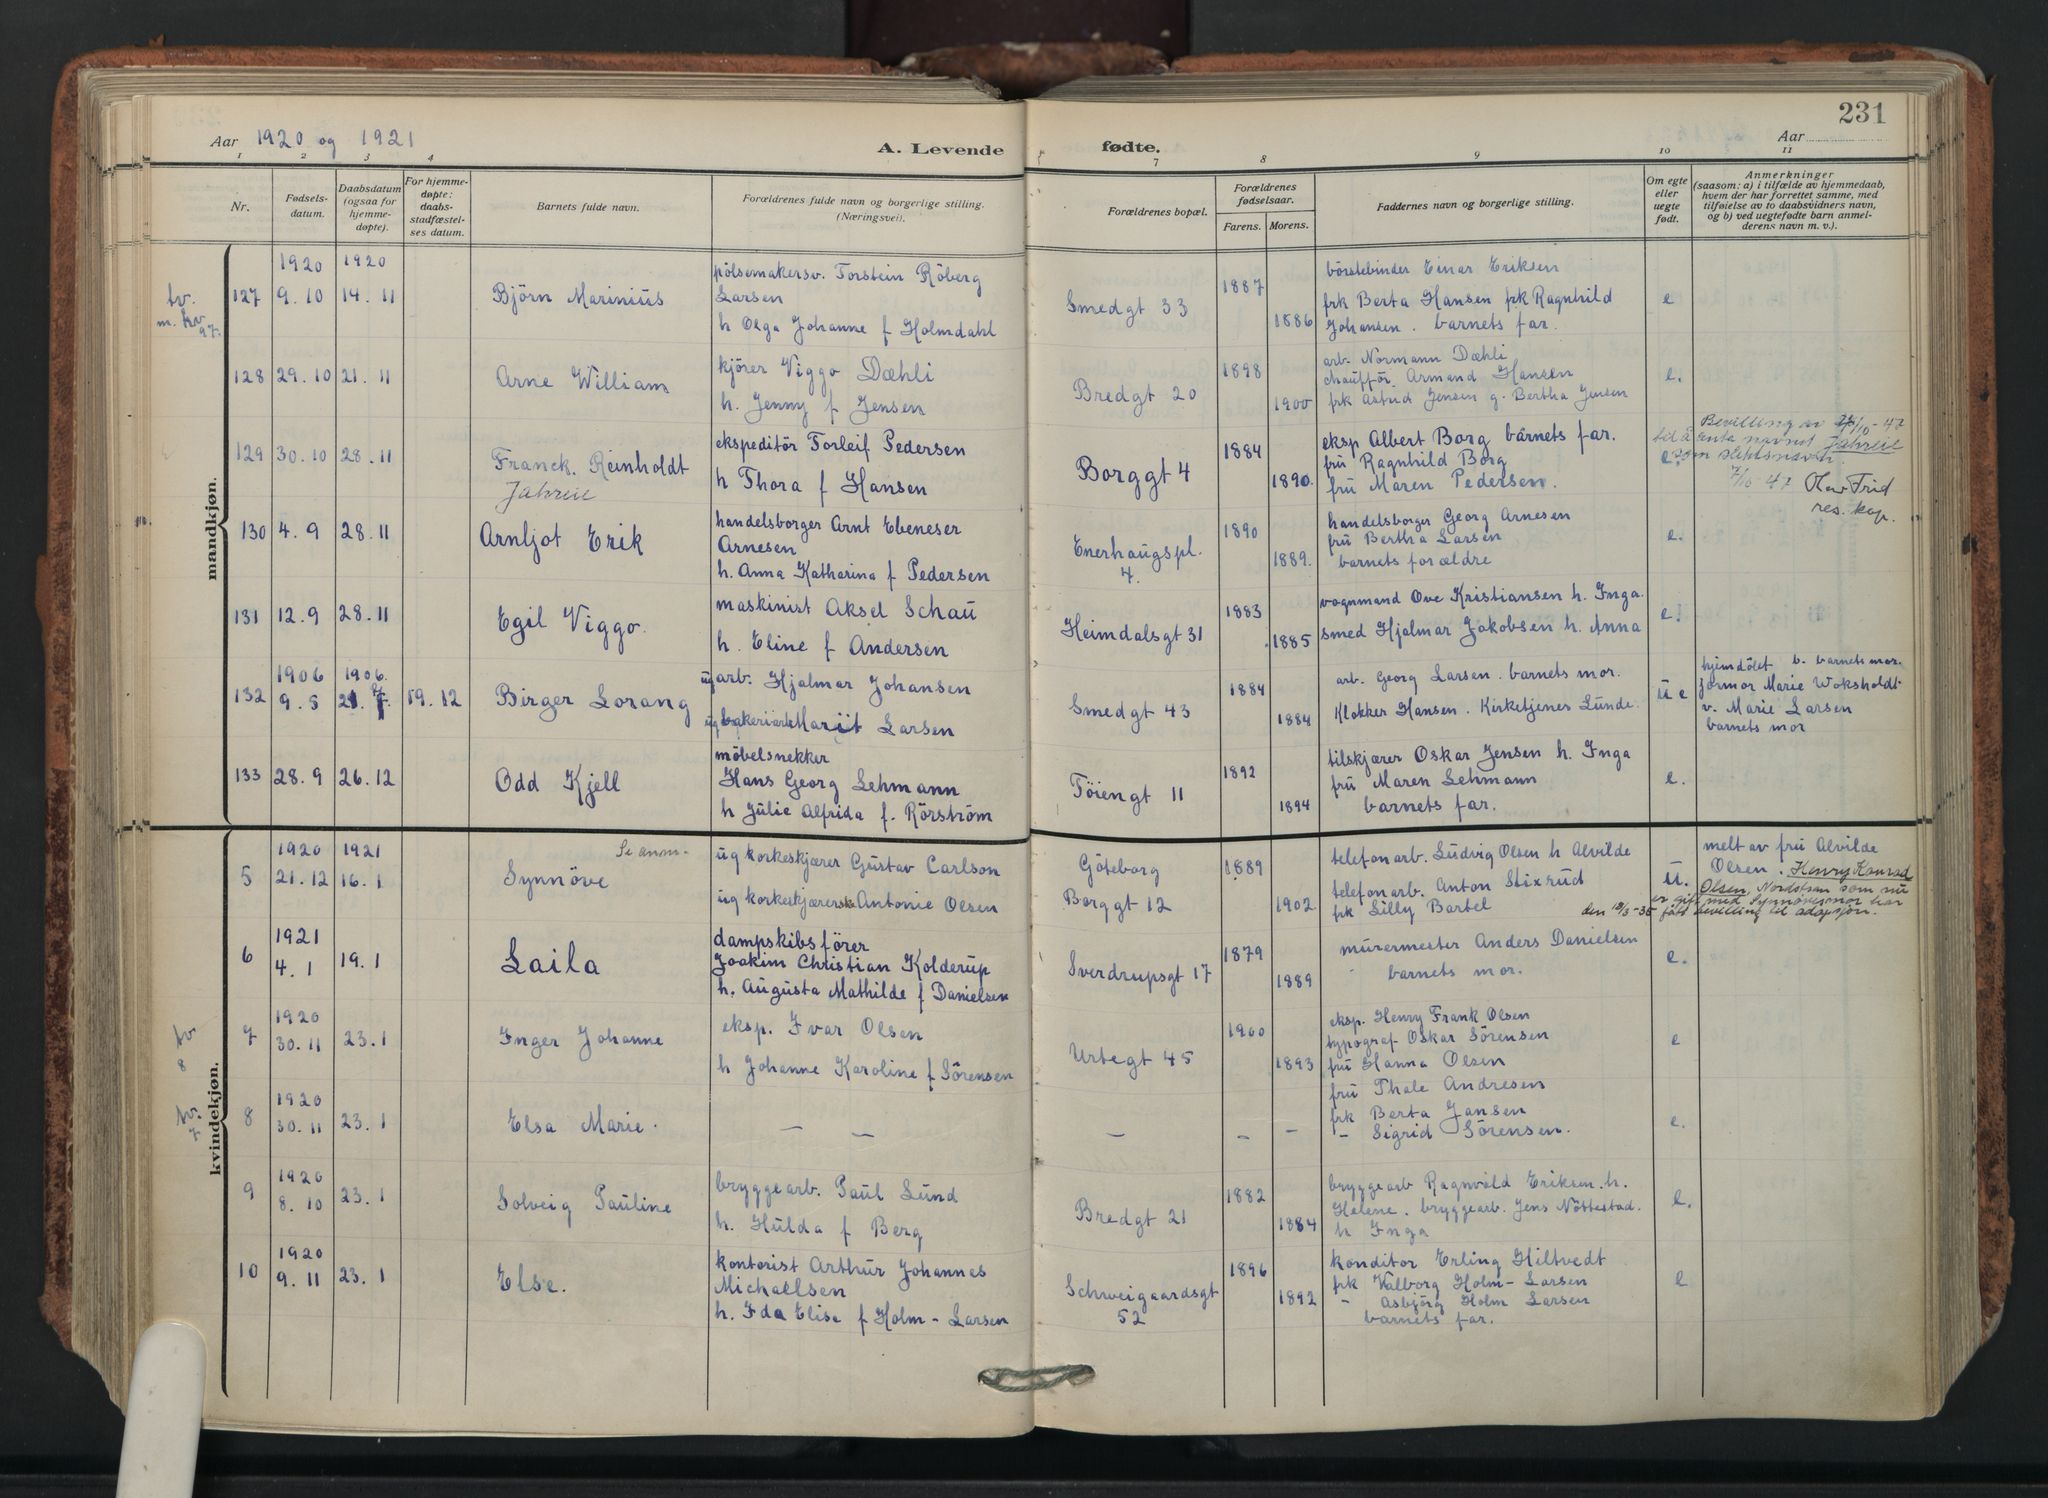 231
Aar 1920 og 1921
A. Levende
fødte.
Aar
1 2 3 4
7 8 9 10 11
Nr.
Fødsels-
datum.
Daabsdatum
(ogsaa for
hjemme-
døpte).
For hjemme-
døpte:
daabs-
stadfæstel-
ses datum.
Barnets fulde navn.
Forældrenes fulde navn og borgerlige stilling.
(Næringsvei).
Forældrenes bopæl.
Forældrenes
fødselsaar.
Farens. Morens.
Faddernes navn og borgerlige stilling.
Om egte
eller
uegte
født.
Anmerkninger
(saasom: a) i tilfælde av hjemmedaab,
hvem der har forrettet samme, med
tilføielse av to daabsvidners navn,
og b) ved uegtefødte barn anmel-
derens navn m. v.).
mandkjøn.
tv.
m. kv
97.
127
1920
9. 10
1920
14. 11
Björn Marinius
pölsemakersv. Torstein Röberg
Larsen
h Olga Johanne f Holmdahl
Smedgt 33
1887
1886
börstebinder Einar Eriksen
frk Berta Hansen frk Ragnhild
Johansen. barnets far.
e
128
29. 10
21. 11
Arne William
kjörer Viggo Dæhli
h. Jenny f Jensen
Bredgt 20
1898
1900
arb. Normann Dæhli
chaufför. Armand Hansen
frk Astrid Jensen g. Bertha Jensen
e.
129
30. 10
28. 11
Franck. Reinholdt
Jahreie
ekspeditör Torleif Pedersen
h Thora f Hansen
Borggt 4
1884
1890.
eksp Albert Borg barnets far.
fru Ragnhild Borg
fru Maren Pedersen.
e.
Bevilling av /10-47
til å anta navnet Jahreie
som slektsnavn.
7/10 47 Olav Frid
res. kap.
130
4. 9
28. 11
Arnljot Erik
handelsborger Arnt Ebeneser
Arnesen
h. Anna Katharina f Pedersen
Enerhaugspl.
4.
1890
1889.
handelsborger Georg Arnesen
fru Bertha Larsen
barnets forældre
e.
131
12. 9
28. 11
Egil Viggo.
maskinist Aksel Schau
h. Eline f Andersen
Heimdalsgt 31
1883
1885
vognmand Ove Kristiansen h. Inga.
smed Hjalmar Jakobsen h. Anna
e.
132
1906
9. 5
1906.
21. 7
19. 12
Birger Lorang
ug arb. Hjalmar Johansen
ug bakeriarb Marit Larsen
Smedgt 43
1884
1884
arb. Georg Larsen. barnets mor.
Klokker Hansen. Kirketjener Lunde.
u e
hjemdöbt b. barnets mor.
formor Marie Woksholdt
v. Marie Larsen
barnets mor
133
28. 9
26. 12
Odd Kjell
möbelsnekker
Hans Georg Lehmann
h Julie Alfrida f. Rörström
Töiengt 11
1892
1894
tilskjærer Oskar Jensen h. Inga
fru Maren Lehmann
barnets far.
e.
kvindekjøn.
5
1920
21. 12
1921
16. 1
Synnöve
Se anm-
ug korkeskjærer Gustav Carlson
ug korkeskjærerske Antonie Olsen
Göteborg
Borggt 12
1889
1902.
telefonarb. Ludvig Olsen h Alvilde
telefonarb. Anton Stixrud
frk Lilly Bartel
u.
melt av fru Alvilde
Olsen. Henry Konrad
Olsen, Nordstran som nu
er gift med Synnöves mor har
den 19/3-35 fått bevilling til adopsjon.
6
1921
4. 1
19. 1
Laila
dampskibsförer
Joakim Christian Kolderup
h. Augusta Mathilde f Danielsen
Sverdrupsgt 17
1879
1889
murermester Anders Danielsen
barnets mor.
e.
tv
8
7
1920
30. 11
23. 1
Inger Johanne
eksp. Ivar Olsen
h Johanne Karoline f Sörensen
Urtegt 45
1900
1893
eksp. Henry Frank Olsen
typograf Oskar Sörensen
fru Hanna Olsen
fru Thale Andresen
e
tv.
7
8
1920
30. 11
23. 1
Elsa Marie.
— —
— — —
frk Berta Jansen
— Sigrid Sörensen.
e.
9
1920
8. 10
23. 1
Solveig Pauline
bryggearb. Paul Lund
h. Hulda f Berg
Bredgt 21
1882
1884
bryggearb Ragnvald Eriksen. h.
Helene. bryggearb. Jens Nöttestad.
h Inga
e.
10
1920
9. 11
23. 1
Else.
kontorist Arthur Johannes
Michaelsen
h. Ida Elise f Holm-Larsen
Schweigaardsgt
52
1896
1892
konditor Erling Hiltvedt
frk Valborg Holm-Larsen
— Asbjörg Holm Larsen
barnets far.
e